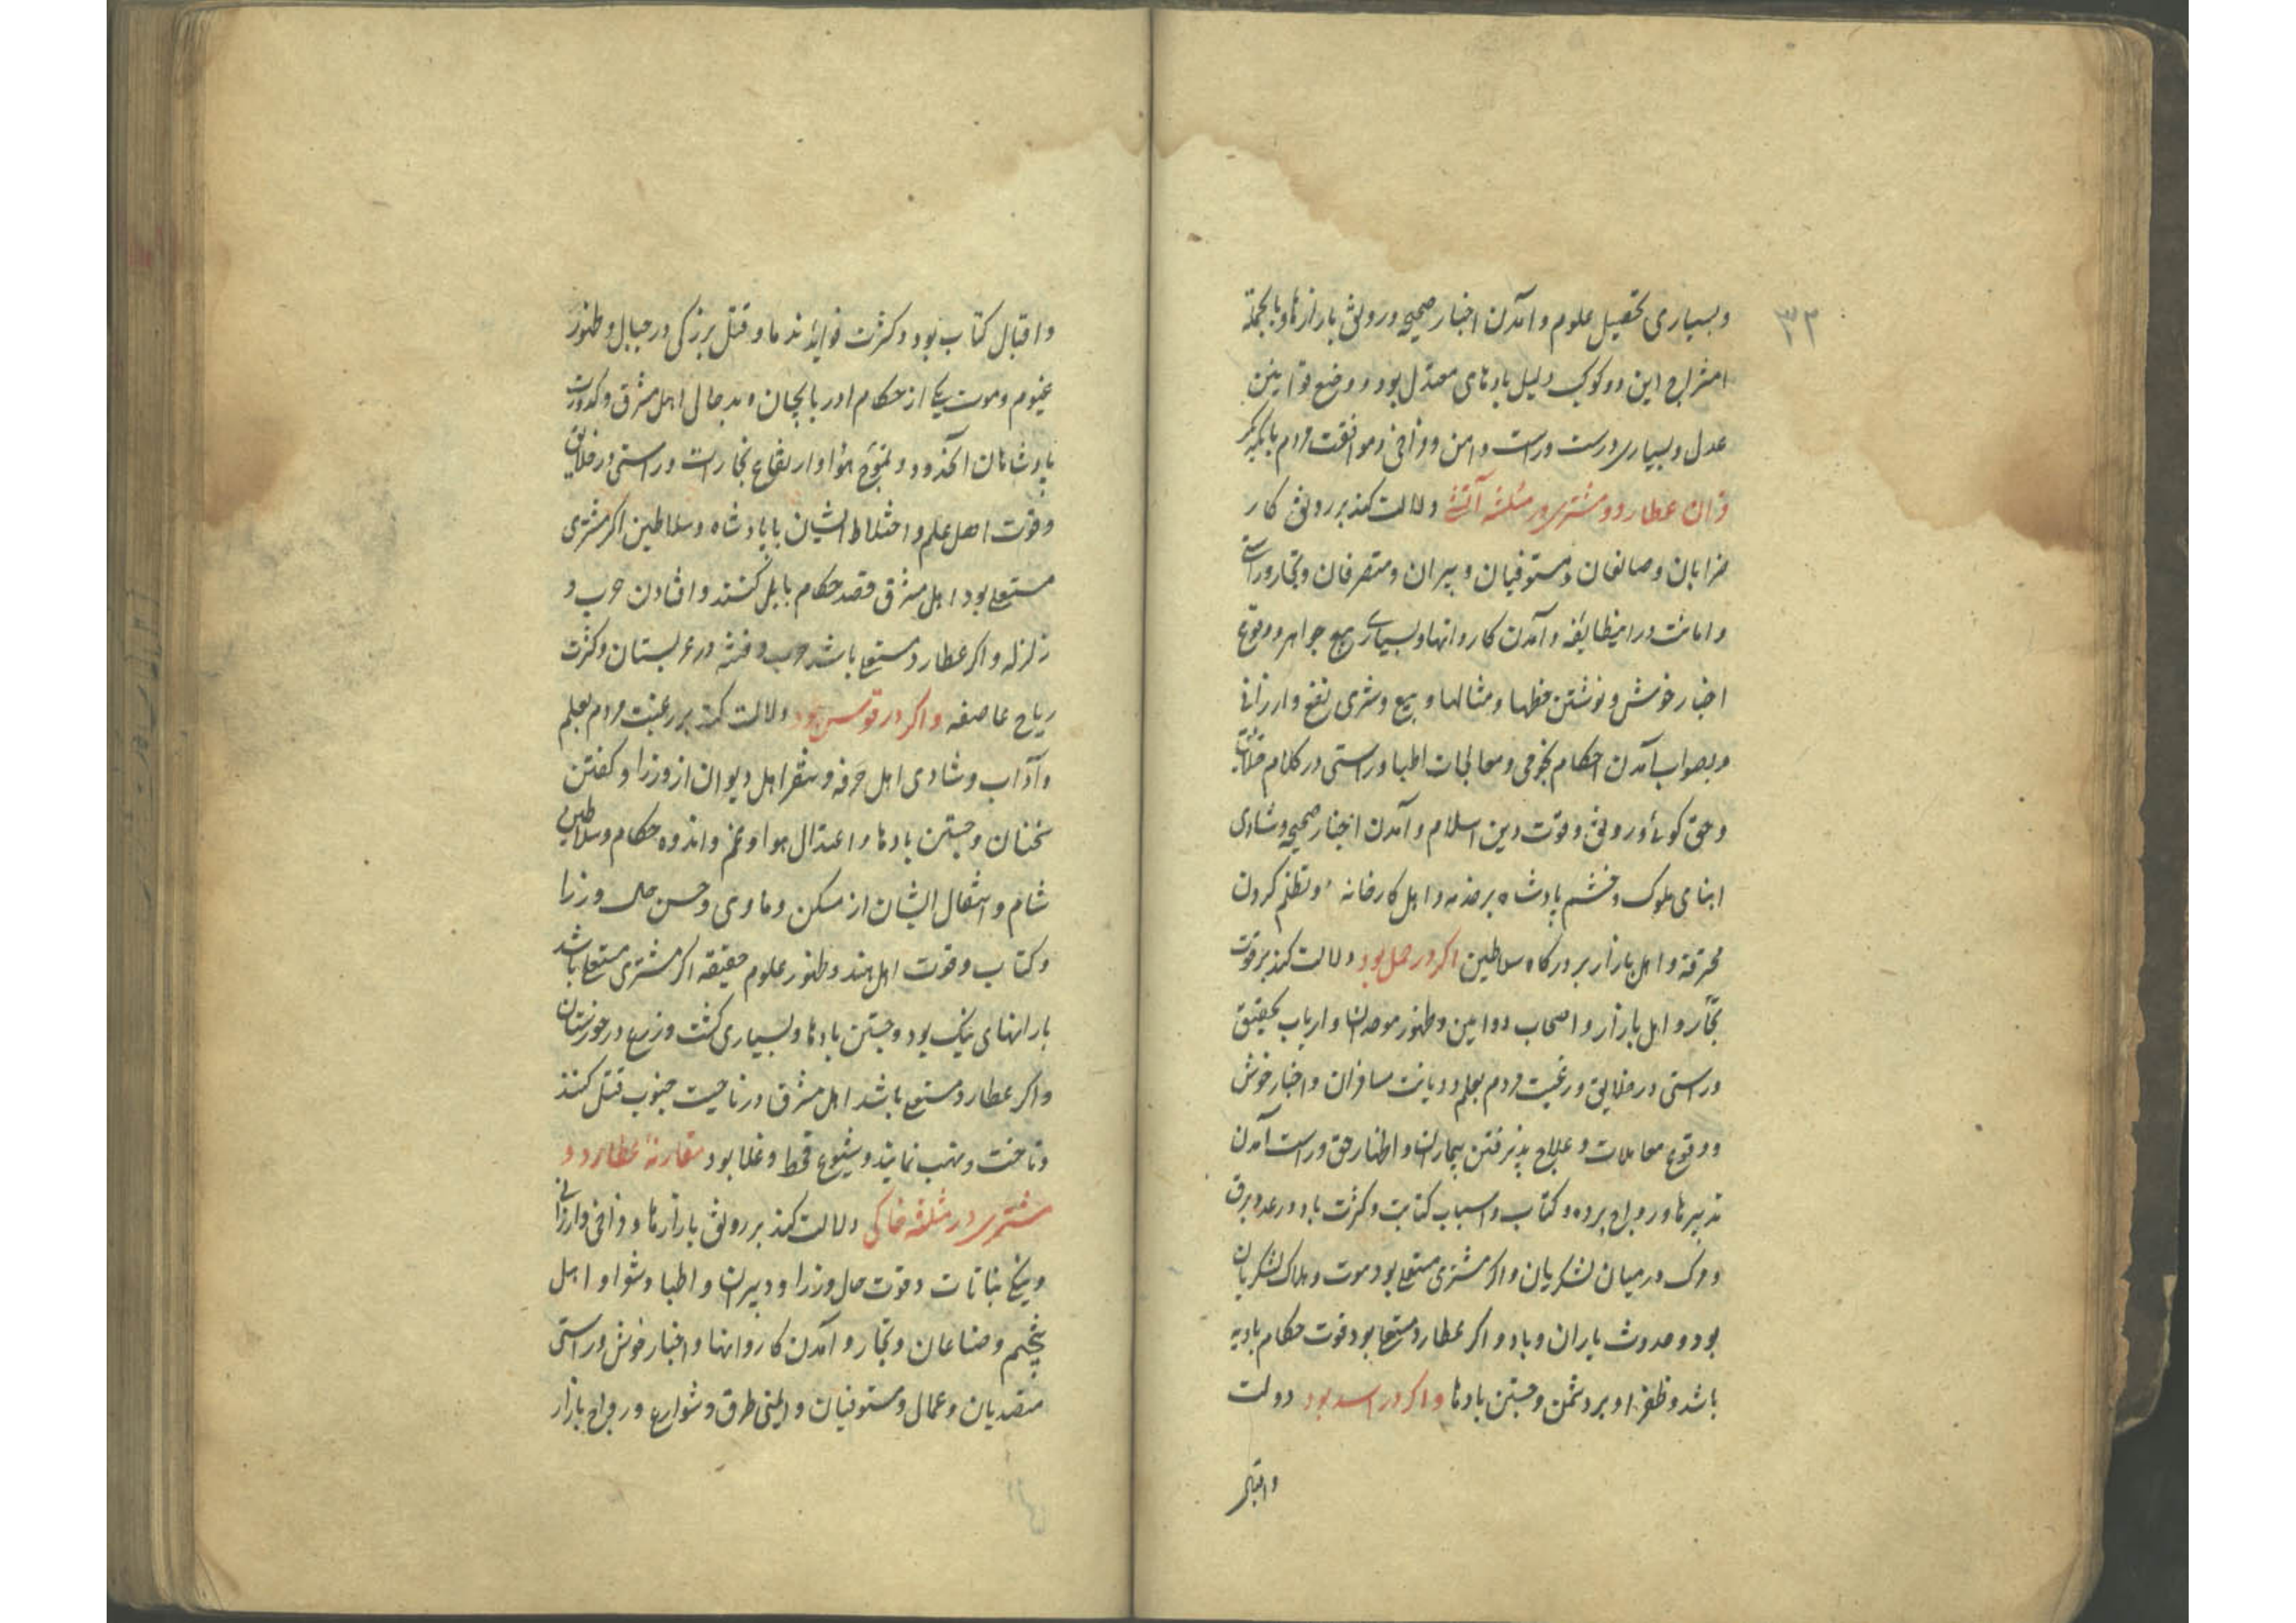 ۳۲
وبسیاری تحصیل علوم وآمدن اخبار صحیح ورونق بازارها وبالجمله
امتزاج این دو کوکب دلیل بادهای معتدل بود ووضع قوانین
عدل وبسیاری درست وراست وامن وفراخی وموافقت مردم بایکدیگر
قران عطارد ومشتری در مثلثه آتشی دلالت کند بر رونق کار
ضرابان وصانعان ومستوفیان ودبیران ومتصرفان وتجار وراستی
وامانت دراینطایفه وآمدن کاروانها وبسیاری بیع جواهر ووقوع
اخبار خوش ونوشتن خطها ومثالها وبیع وشری نفع وارزانی
وبصواب آمدن احکام نجومی ومعالجات اطبا وراستی در کلام خلایق
وحق کوئی ورونق وقوت دین اسلام وآمدن اخبار صحیح وشادی
ابنای ملوک وخشم پادشاه بر خدمه واهل کارخانه وتظلم کردن
محترفه واهل بازار بر درکاه سلاطین اکر در حمل بود دلالت کند بر قوت
تجار واهل بازار واصحاب دواوین وظهور موحدان وارباب تحقیق
وراستی در خلایق ورغبت مردم بعلم ودیانت مسافران واخبار خوش
ووقوع معاملات وعلاج پذیرفتن بیماران واظهار حق وراست آمدن
تدبیرها ورواج برده وکتاب واسباب کتابت وکثرت باد ورعد وبرق
ومرک در میان لشکریان واکر مشتری مستعلی بود موت وهلاک لشکریان
بود وحدوث باران وباد واکر عطارد مستعلی بود قوت حکام بادیه
باشد وظفر او بر دشمن وجستن بادها واکر در اسد بود دولت
واقبال
واقبال کتاب بود وکثرت فواید ندما وقتل بزرکی در جبال وظهور
غیوم وموت یکی از حکام ادربایجان وبدحالی اهل مشرق وکدورت
پادشاهان وتموج هوا وارتفاع تجارات وراستی در خلایق
وقوت اهل علم واختلاط ایشان با پادشاه وسلاطین اکر مشتری
مستعلی بود اهل مشرق قصد حکام بابل کنند وافتادن حرب و
زلزله واکر عطارد مستعلی باشد حرب وفتنه در عربستان وکثرت
ریاح عاصفه واکر در قوس بود دلالت کند بر رغبت مردم بعلم
وآداب وشادی اهل حرفه وسفر اهل دیوان از وزرا وکفتن
سخنان وجستن بادها واعتدال هوا وغم واندوه حکام وسلاطین
شام وانتقال ایشان از مسکن وماوی وحسن حال وزرا
وکتاب وقوت اهل هند وظهور علوم حقیقه اکر مشتری مستعلی باشد
بارانهای نیک بود وجستن بادها وبسیاری کشت وزرع در خوزستان
واکر عطارد مستعلی باشد اهل مشرق در ناحیت جنوب قتل کنند
وتاخت ونهب نمایند وشیوع قحط وغلا بود مقارنهٔ عطارد و
مشتری در مثلثه خاکی دلالت کند بر رونق بازارها وفراخی وارزانی
نباتات وقوت حال وزرا ودبیران واطبا وشعرا واهل
تنجیم وصناعان وتجار وآمدن کاروانها واخبار خوش وراستی
متصدیان وعمال ومستوفیان وایمنی طرق وشوارع ورواج بازار